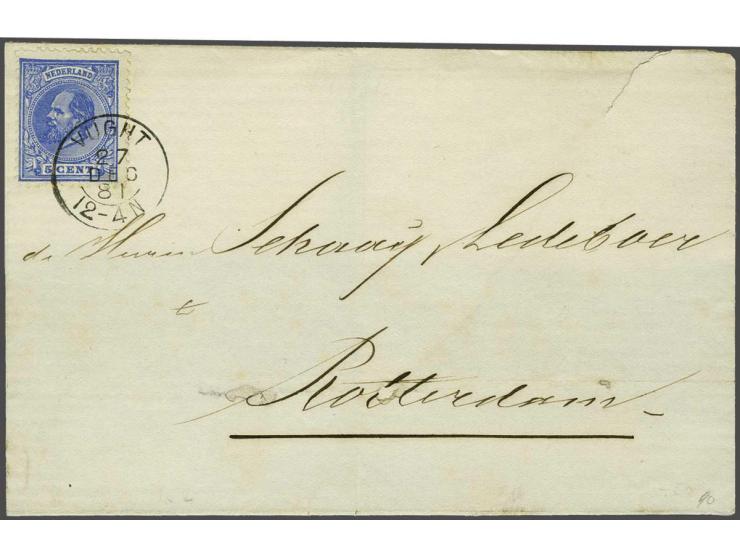 NEDERLAND
5 CENT
VUGHT
27
DEC
81
12-4N
de Heeren Schaay, Ledeboer
t
Rotterdam
90